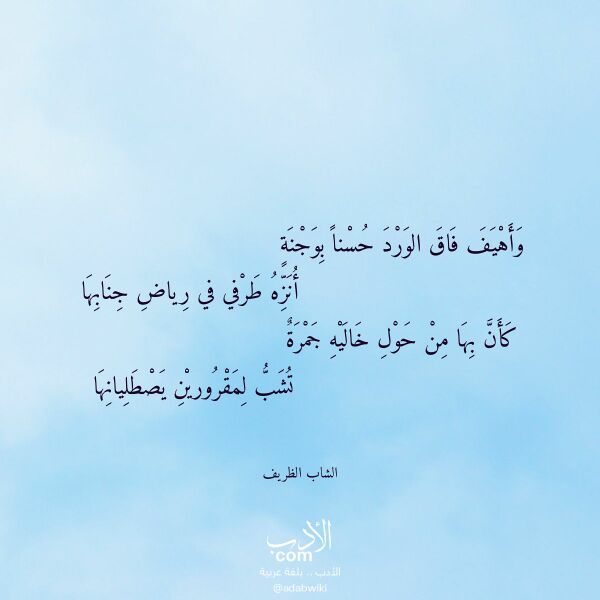 وَأَهْيَفَ فَاقَ الوَرْدَ حُسْناً بِوَجْنَةٍ
أُنَزِّهُ طَرْفي في رِياضِ جِنَابِهَا
كَأَنَّ بِهَا مِنْ حَوْلِ خَالَيْهِ جَمْرَةٌ
تُشَبُّ لِمَقْرُوريْنِ يَصْطَلِيانِهَا
الشاب الظريف
الأدب
com
الأدب .. بلغة عربية
@adabwiki